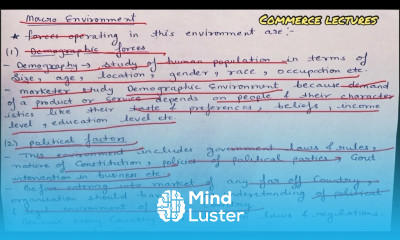 Macro Environment
COMMERCE LECTURES
* forces operating in this environment are:-
(1) Demographic forces
- Demography → study of human population in terms of
size, age, location, gender, race, occupation etc.
- marketer study Demographic Environment because demand
of a product or service depends on people & their character
istics like their taste & preferences, beliefs, income
level, education level etc.
(2) political factors
- This environment includes government laws & rules,
nature of Constitution, policies of political parties, Govt
intervention in business etc.
- Before entering into market of any far off Country,
organisation should have understanding of political
& legal environment of
laws & regulations.
Mind
Luster